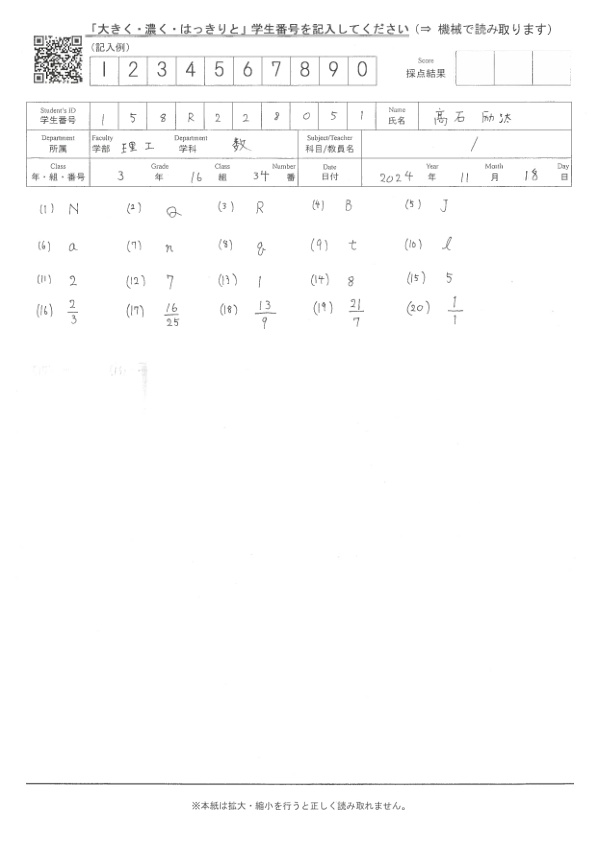 「大きく・濃く・はっきりと」学生番号を記入してください（⇒ 機械で読み取ります）
（記入例）
1 2 3 4 5 6 7 8 9 0
Score
採点結果
Student's ID
学生番号
1 5 8 R 2 2 8 0 5 1
Name
氏名
髙石 励汰
Department
所属
Faculty
学部
理工
Department
学科
数
Subject/Teacher
科目/教員名
/
Class
年・組・番号
3
Grade
年
16
Class
組
34
Number
番
Date
日付
2024
Year
年
11
Month
月
18
Day
日
(1) N (2) Q (3) R (4) B (5) J
(6) a (7) n (8) q (9) t (10) l
(11) 2 (12) 7 (13) 1 (14) 8 (15) 5
(16) 2/3 (17) 16/25 (18) 13/9 (19) 21/7 (20) 1/1
※本紙は拡大・縮小を行うと正しく読み取れません。